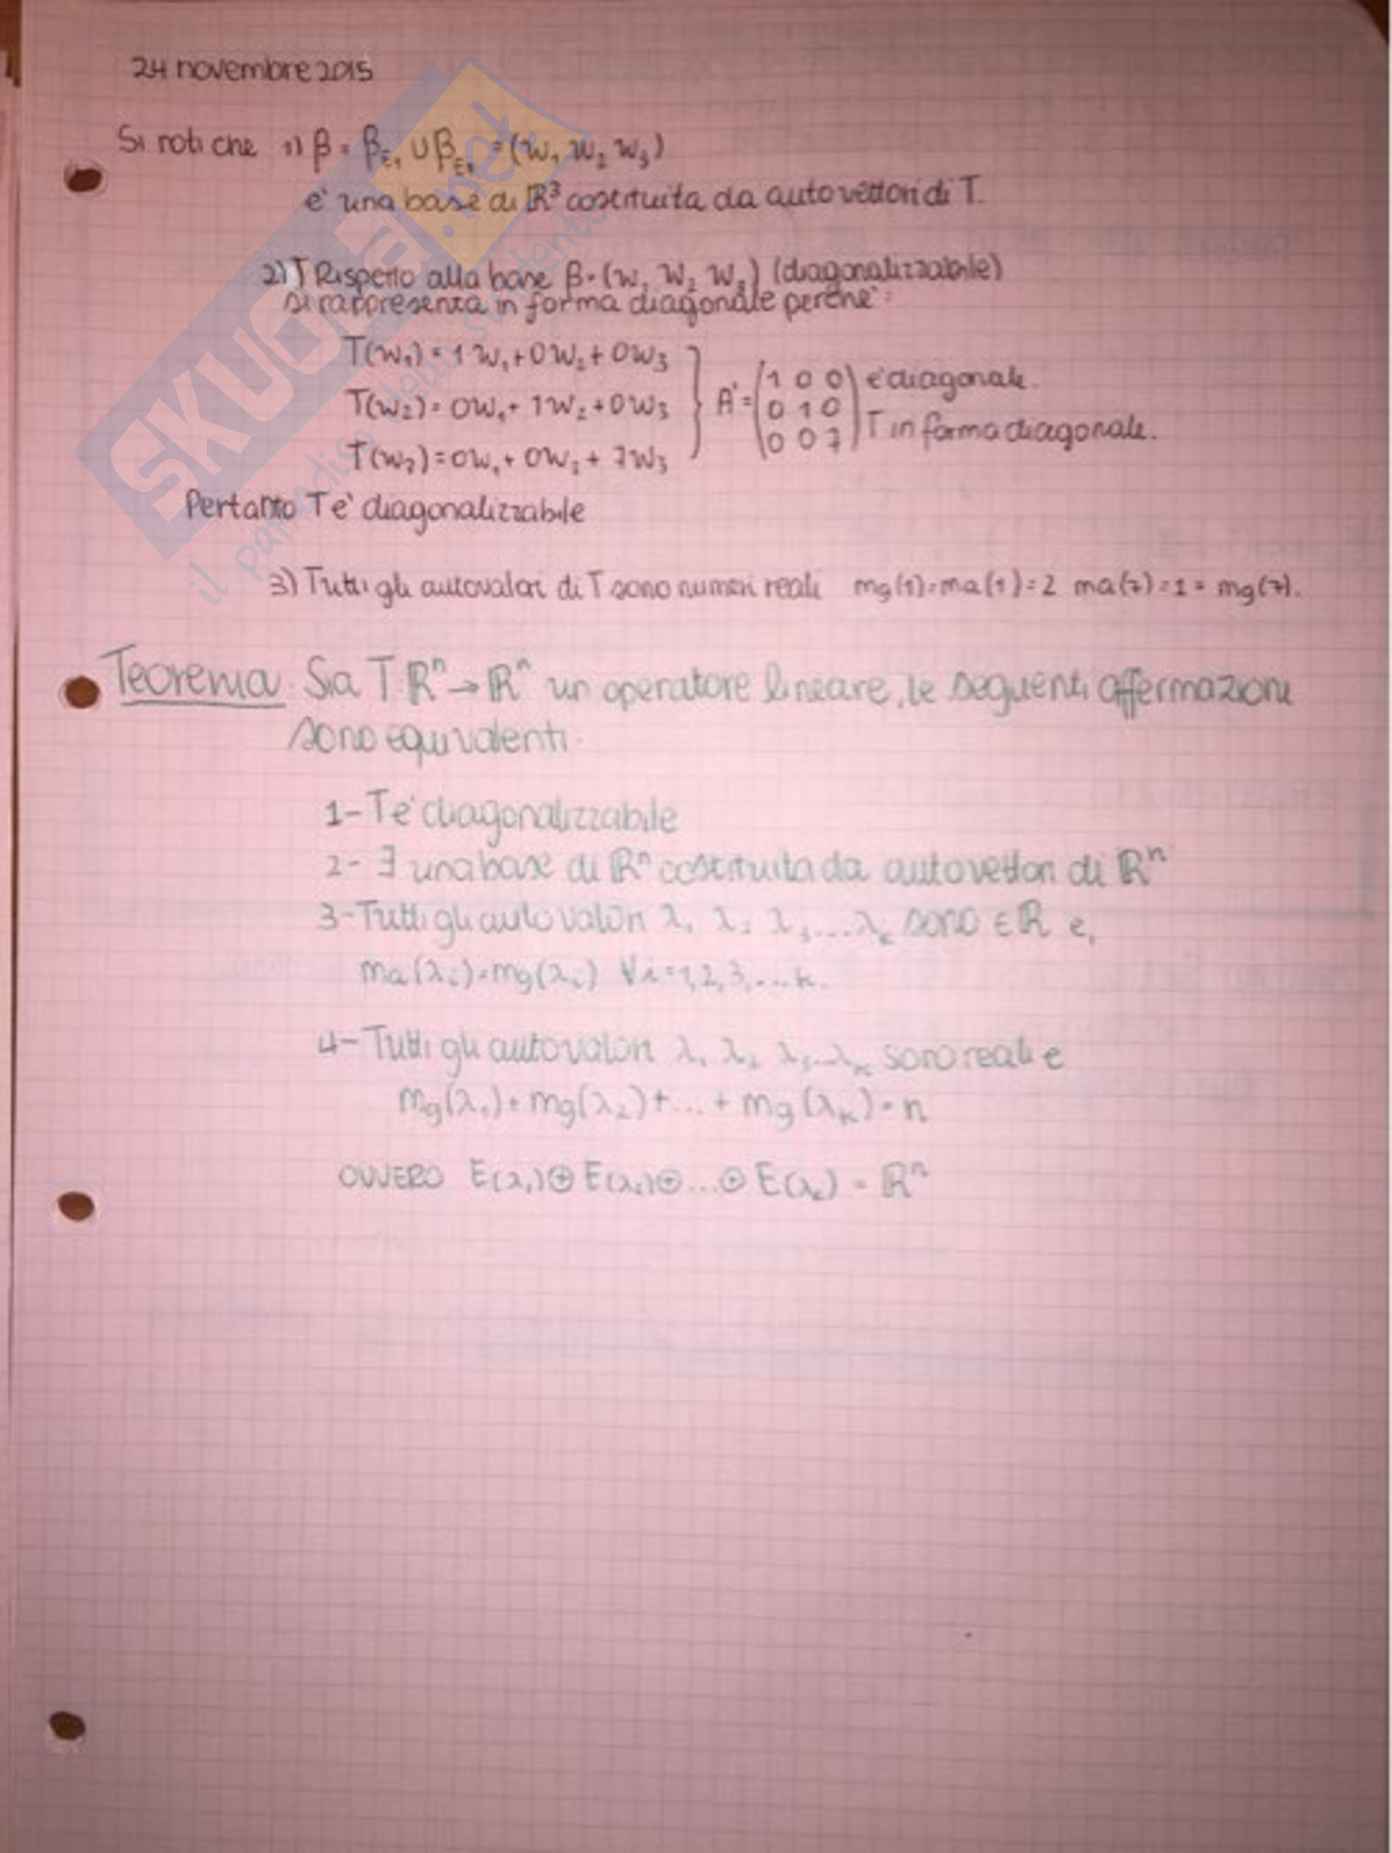 24 novembre 2015
Si noti che 1) β = β_E₁ ∪ β_E₇ = (w₁ w₂ w₃)
e' una base di ℝ³ costituita da autovettori di T.
2) T Rispetto alla base β = (w₁ w₂ w₃) (diagonalizzabile)
si rappresenta in forma diagonale perche':
T(w₁) = 1w₁ + 0w₂ + 0w₃
T(w₂) = 0w₁ + 1w₂ + 0w₃
T(w₃) = 0w₁ + 0w₂ + 7w₃
A' = (1 0 0
0 1 0
0 0 7)
e' diagonale.
T in forma diagonale.
Pertanto T e' diagonalizzabile
3) Tutti gli autovalori di T sono numeri reali mg(1) = ma(1) = 2 ma(7) = 1 = mg(7).
Teorema Sia T ℝⁿ → ℝⁿ un operatore lineare, le seguenti affermazioni
sono equivalenti.
1- T e' diagonalizzabile
2- ∃ una base di ℝⁿ costituita da autovettori di ℝⁿ
3- Tutti gli autovalori λ₁ λ₂ λ₃....λₖ sono ∈ ℝ e,
ma(λᵢ) = mg(λᵢ) ∀i = 1,2,3,...k.
4- Tutti gli autovalori λ₁ λ₂ λ₃...λₖ sono reali e
mg(λ₁) + mg(λ₂) + ... + mg(λₖ) = n
OVVERO E(λ₁) ⊕ E(λ₂) ⊕ ... ⊕ E(λₖ) = ℝⁿ
SKUOLA.net
il paradiso dello studente